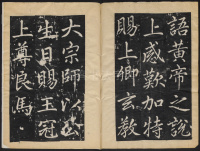 語黄帝之說
上感歎加特
賜上卿玄教
大宗師以公
生日賜玉冠
上尊良馬